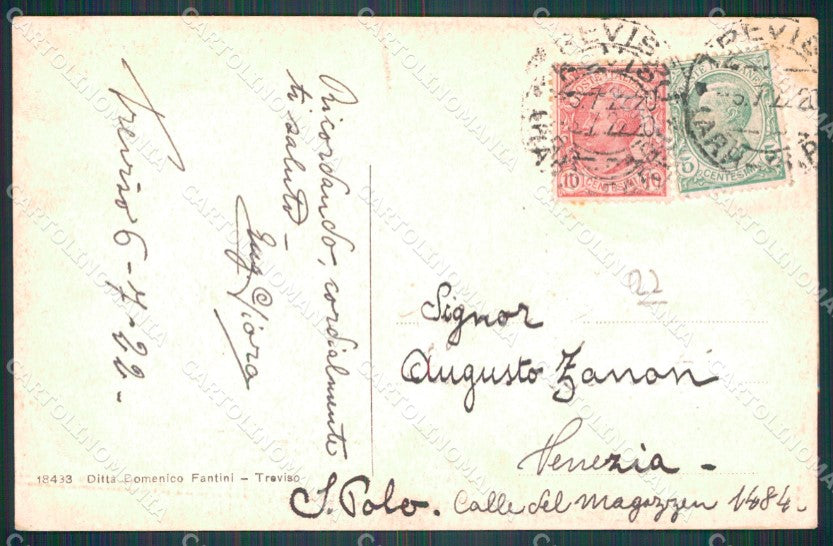 Treviso 6-7-22-
Ricordando, cordialmente
ti saluto-
Eug
18433 Ditta Domenico Fantini - Treviso
TREVISO
10 CENTESIMI 10
TREVISO
15 CENTESIMI
22
Signor
Augusto Zanon
Venezia -
S. Polo. Calle del Magazzen 1484-
CARTOLINOMANIA